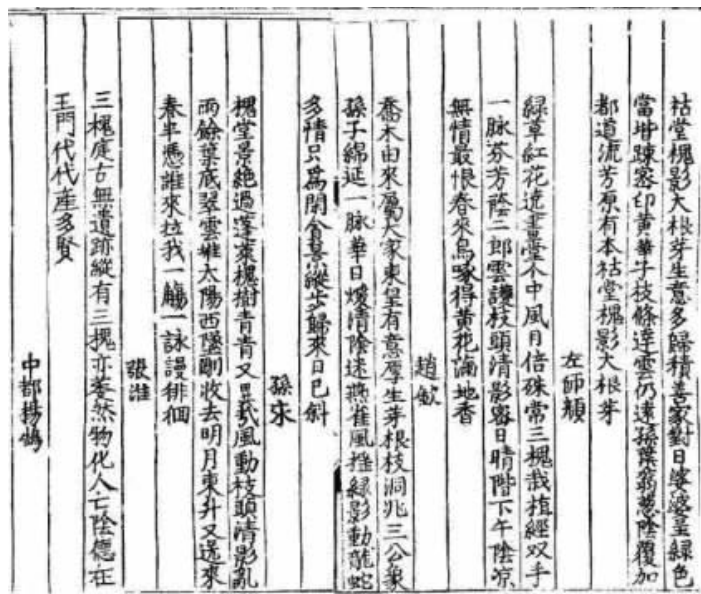 祜堂槐影大根芽生意多歸積善家對日婆婆呈綠色
當堦踈密印黄華子枝條達雲仍遠孫葉蓊葱陰覆加
都道流芳原有本祜堂槐影大根芽
左師顏
綠草紅花遶畫堂个中風月倍殊常三槐栽植經双手
一脉芬芳蔭二郎雲護枝頭清影密日晴階下午陰凉
無情最恨春來鳥啄得黄花滿地香
趙欽
喬木由來屬大家東皇有意厚生芽根枝洞兆三公象
孫子綿延一脉華日煖清陰迷燕雀風摇緑影動龍蛇
多情只爲閑貪景縱步歸來日已斜
孫宋
槐堂景絶過蓬萊槐樹青青又風動枝頭清影亂
雨餘葉底翠雲堆太陽西墜剛收去明月東升又送來
春半憑誰來拉我一觴一詠謾徘徊
張淮
三槐庭古無遺跡縱有三槐亦萎然物化人亡陰德在
王門代代産多賢
中都楊